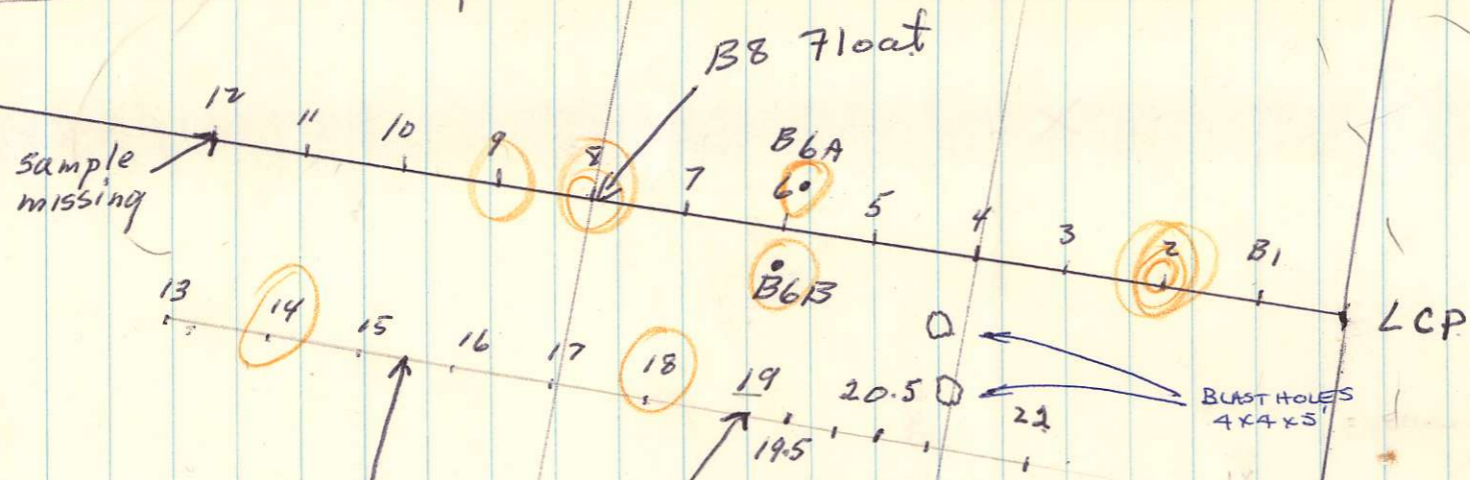 B8 Float
12
11
10
9
8
7
B6A
6
5
4
3
2
B1
LCP
sample
missing
B6B
13
14
15
16
17
18
19
19.5
20.5
22
BLAST HOLES
4x4x5'